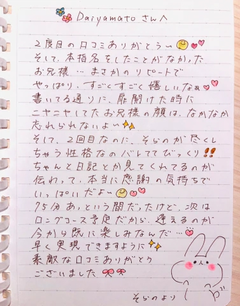 Daiyamato さんへ
２度目の口コミありがとう〜
そして、本指名をしたことがなかった
お兄様… まさかのリピートで
やっぱり、すごくすごく嬉しいなぁ
書いてる通りに、扉開けた時に
ニヤニヤしてたお兄様の顔は、なかなか
忘れられないよ〜
そして、2回目なのに、そらのが尽くし
ちゃう性格なのバレててびっくり!!
ちゃんと日記とか見てくれてるのが
伝わって、本当に感謝の気持ちで
いっぱいだよ〜
75分あっという間だったけど、次は
ロングコース予定だから、逢えるのが
今から既に楽しみなんだ…
早く実現できますように
素敵な口コミありがとう
ございました
そらのより